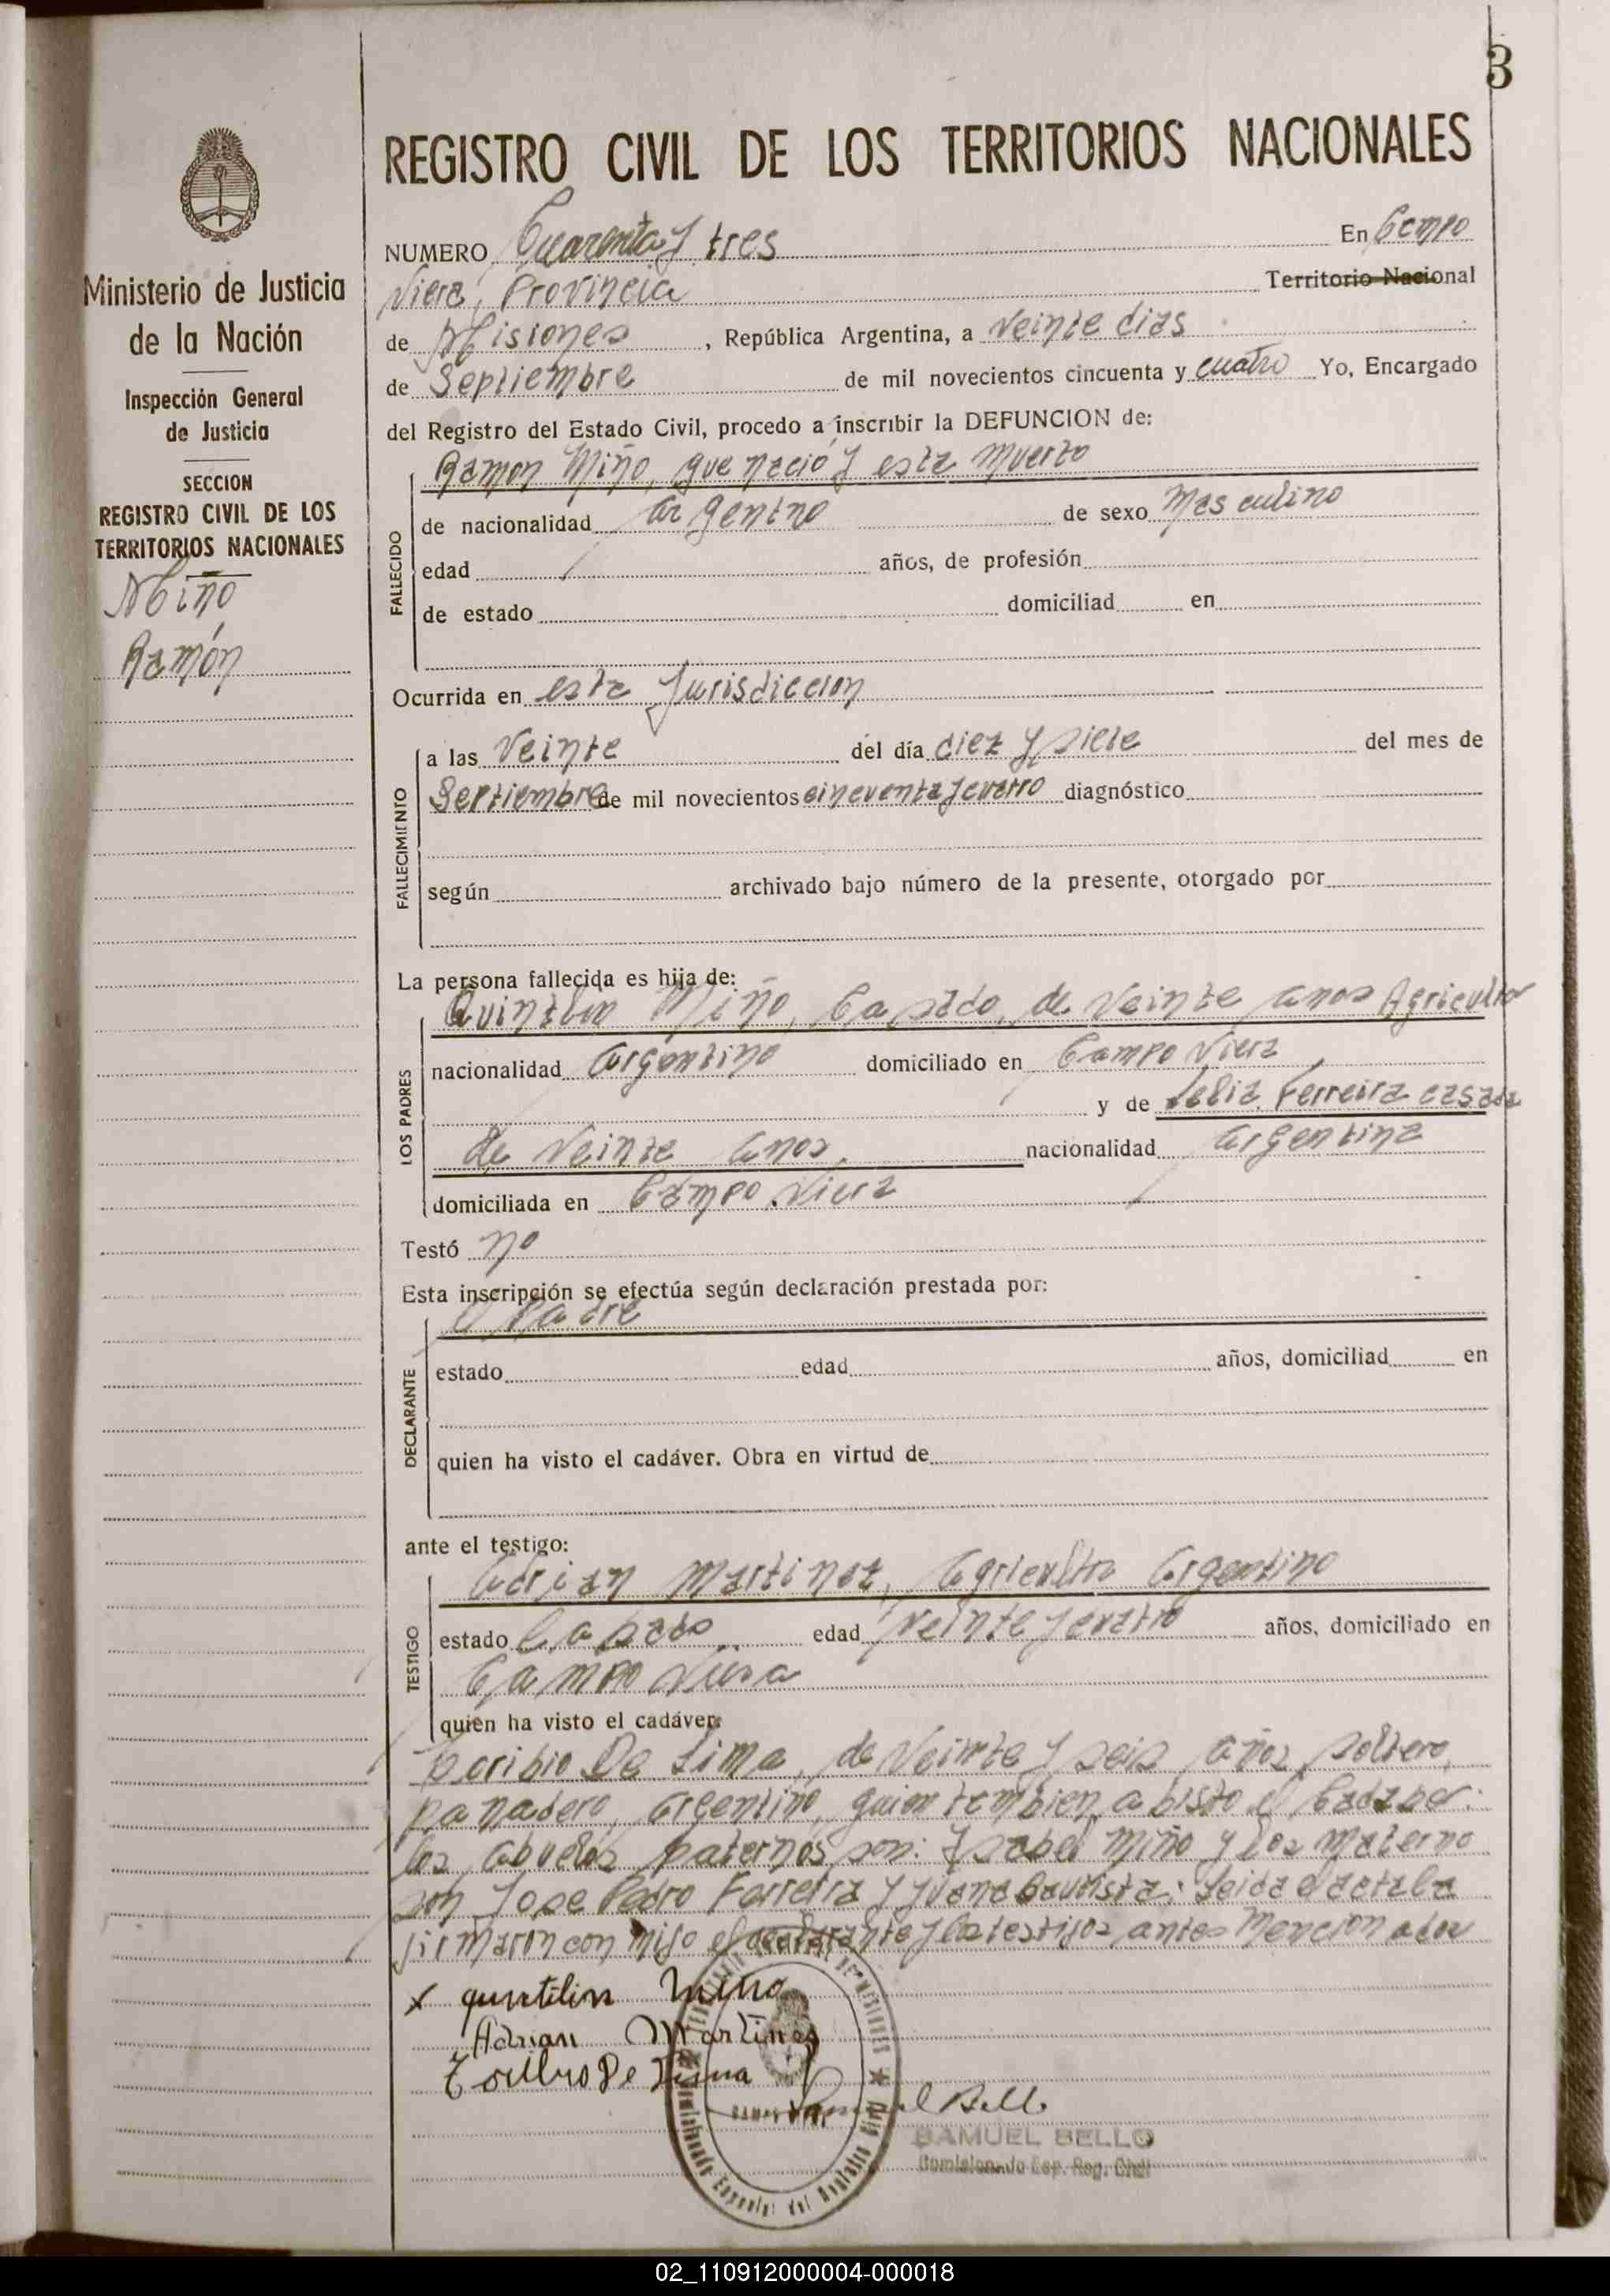 3
REGISTRO CIVIL DE LOS TERRITORIOS NACIONALES
Ministerio de Justicia
de la Nación
Inspección General
de Justicia
SECCION
REGISTRO CIVIL DE LOS
TERRITORIOS NACIONALES
Miño
Ramón
NUMERO Cuarenta y tres En Campo
Viera, Provincia Territorio Nacional
de Misiones, República Argentina, a Veinte dias
de Septiembre de mil novecientos cincuenta y cuatro Yo, Encargado
del Registro del Estado Civil, procedo a inscribir la DEFUNCION de:
FALLECIDO
Ramon Miño, que nació y esta muerto
de nacionalidad argentno de sexo Masculino
edad años, de profesión
de estado domiciliad en
Ocurrida en esta Jurisdiccion
FALLECIMIENTO
a las Veinte del día diez y siete del mes de
Septiembre de mil novecientos cincuenta y cuatro diagnóstico
según archivado bajo número de la presente, otorgado por
La persona fallecida es hija de:
LOS PADRES
Miño, Casado, de Veinte anos Agricultor
nacionalidad argentino domiciliado en Campo Viera
y de Ferreira casada
de Veinte anos, nacionalidad argentina
domiciliada en Campo Viera
Testó no
Esta inscripción se efectúa según declaración prestada por:
DECLARANTE
el Padre
estado edad años, domiciliad en
quien ha visto el cadáver. Obra en virtud de
ante el testigo:
TESTIGO
Adrian Martinez, agricultor argentino
estado Casado edad Veinte y cuatro años, domiciliado en
Campo Viera
quien ha visto el cadáver.
Toribio De Lima, de Veinte y seis años, soltero,
panadero, argentino, quien tambien a bisto el Cadaber.
los abuelos paternos son: Isabel Miño y los materno
son Jose Pedro Ferreira y Juana Bautista. Leida el acta la
firmaron con migo el declarante y los testigos antes Mencionados
x quintilin Miño
Adrian Martinez
Toribio De Lima
Samuel Bello
SAMUEL BELLO
Comisionado Esp. Reg. Civil
02_110912000004-000018